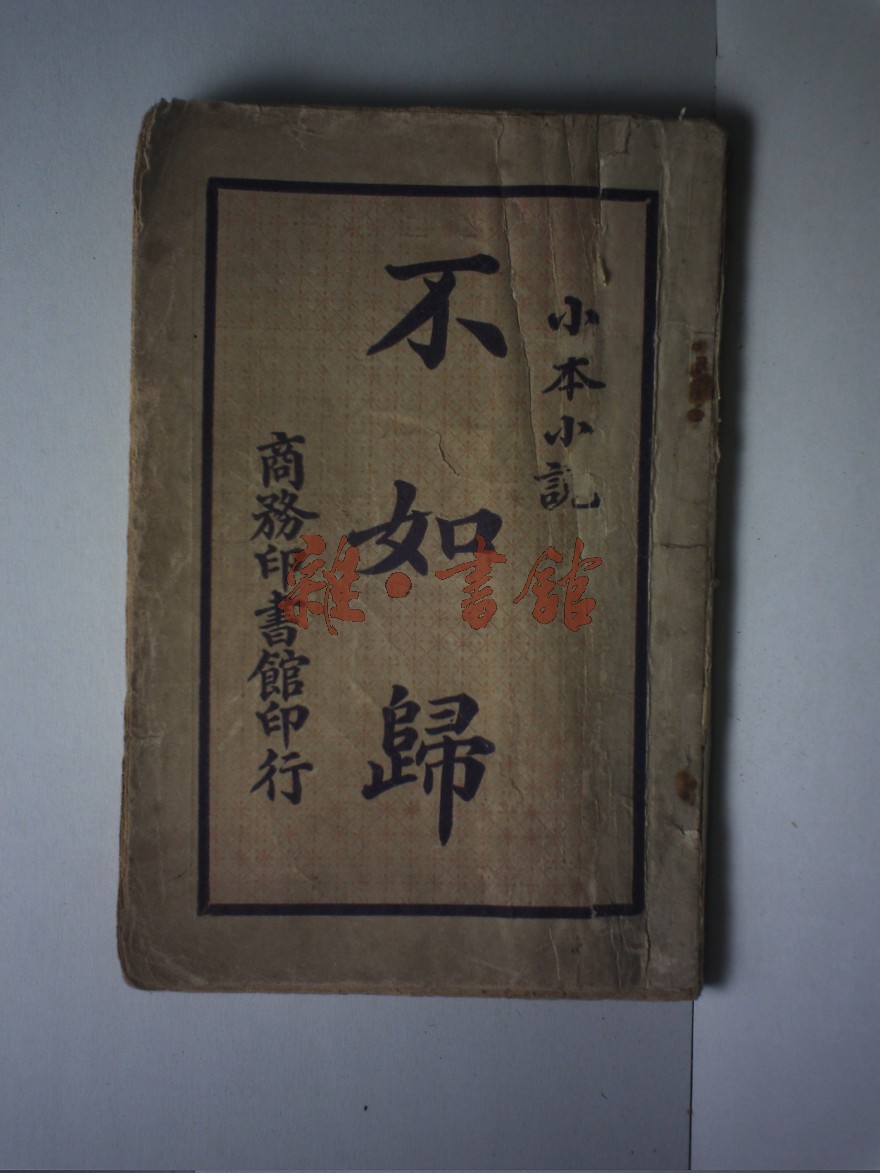 小本小説
不如歸
商務印書館印行
雜·書館